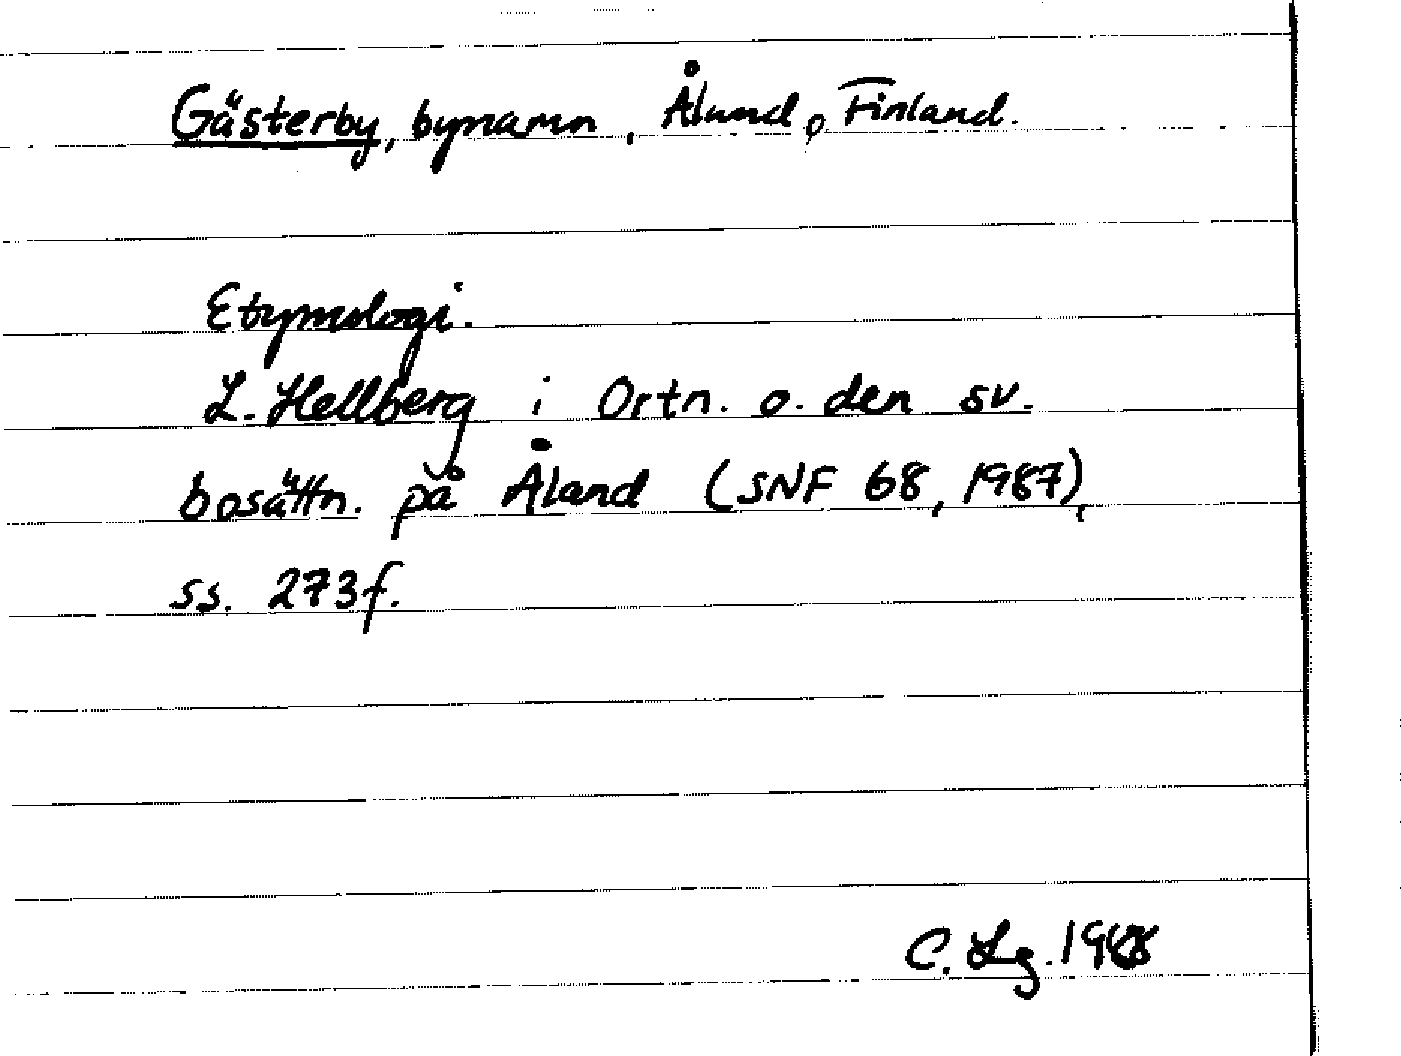 Gästerby, bynamn, Åland, Finland.
Etymologi.
L. Hellberg i Ortn. o. den sv.
bosättn. på Åland (SNF 68, 1987),
ss. 273f.
C. Lg. 1988